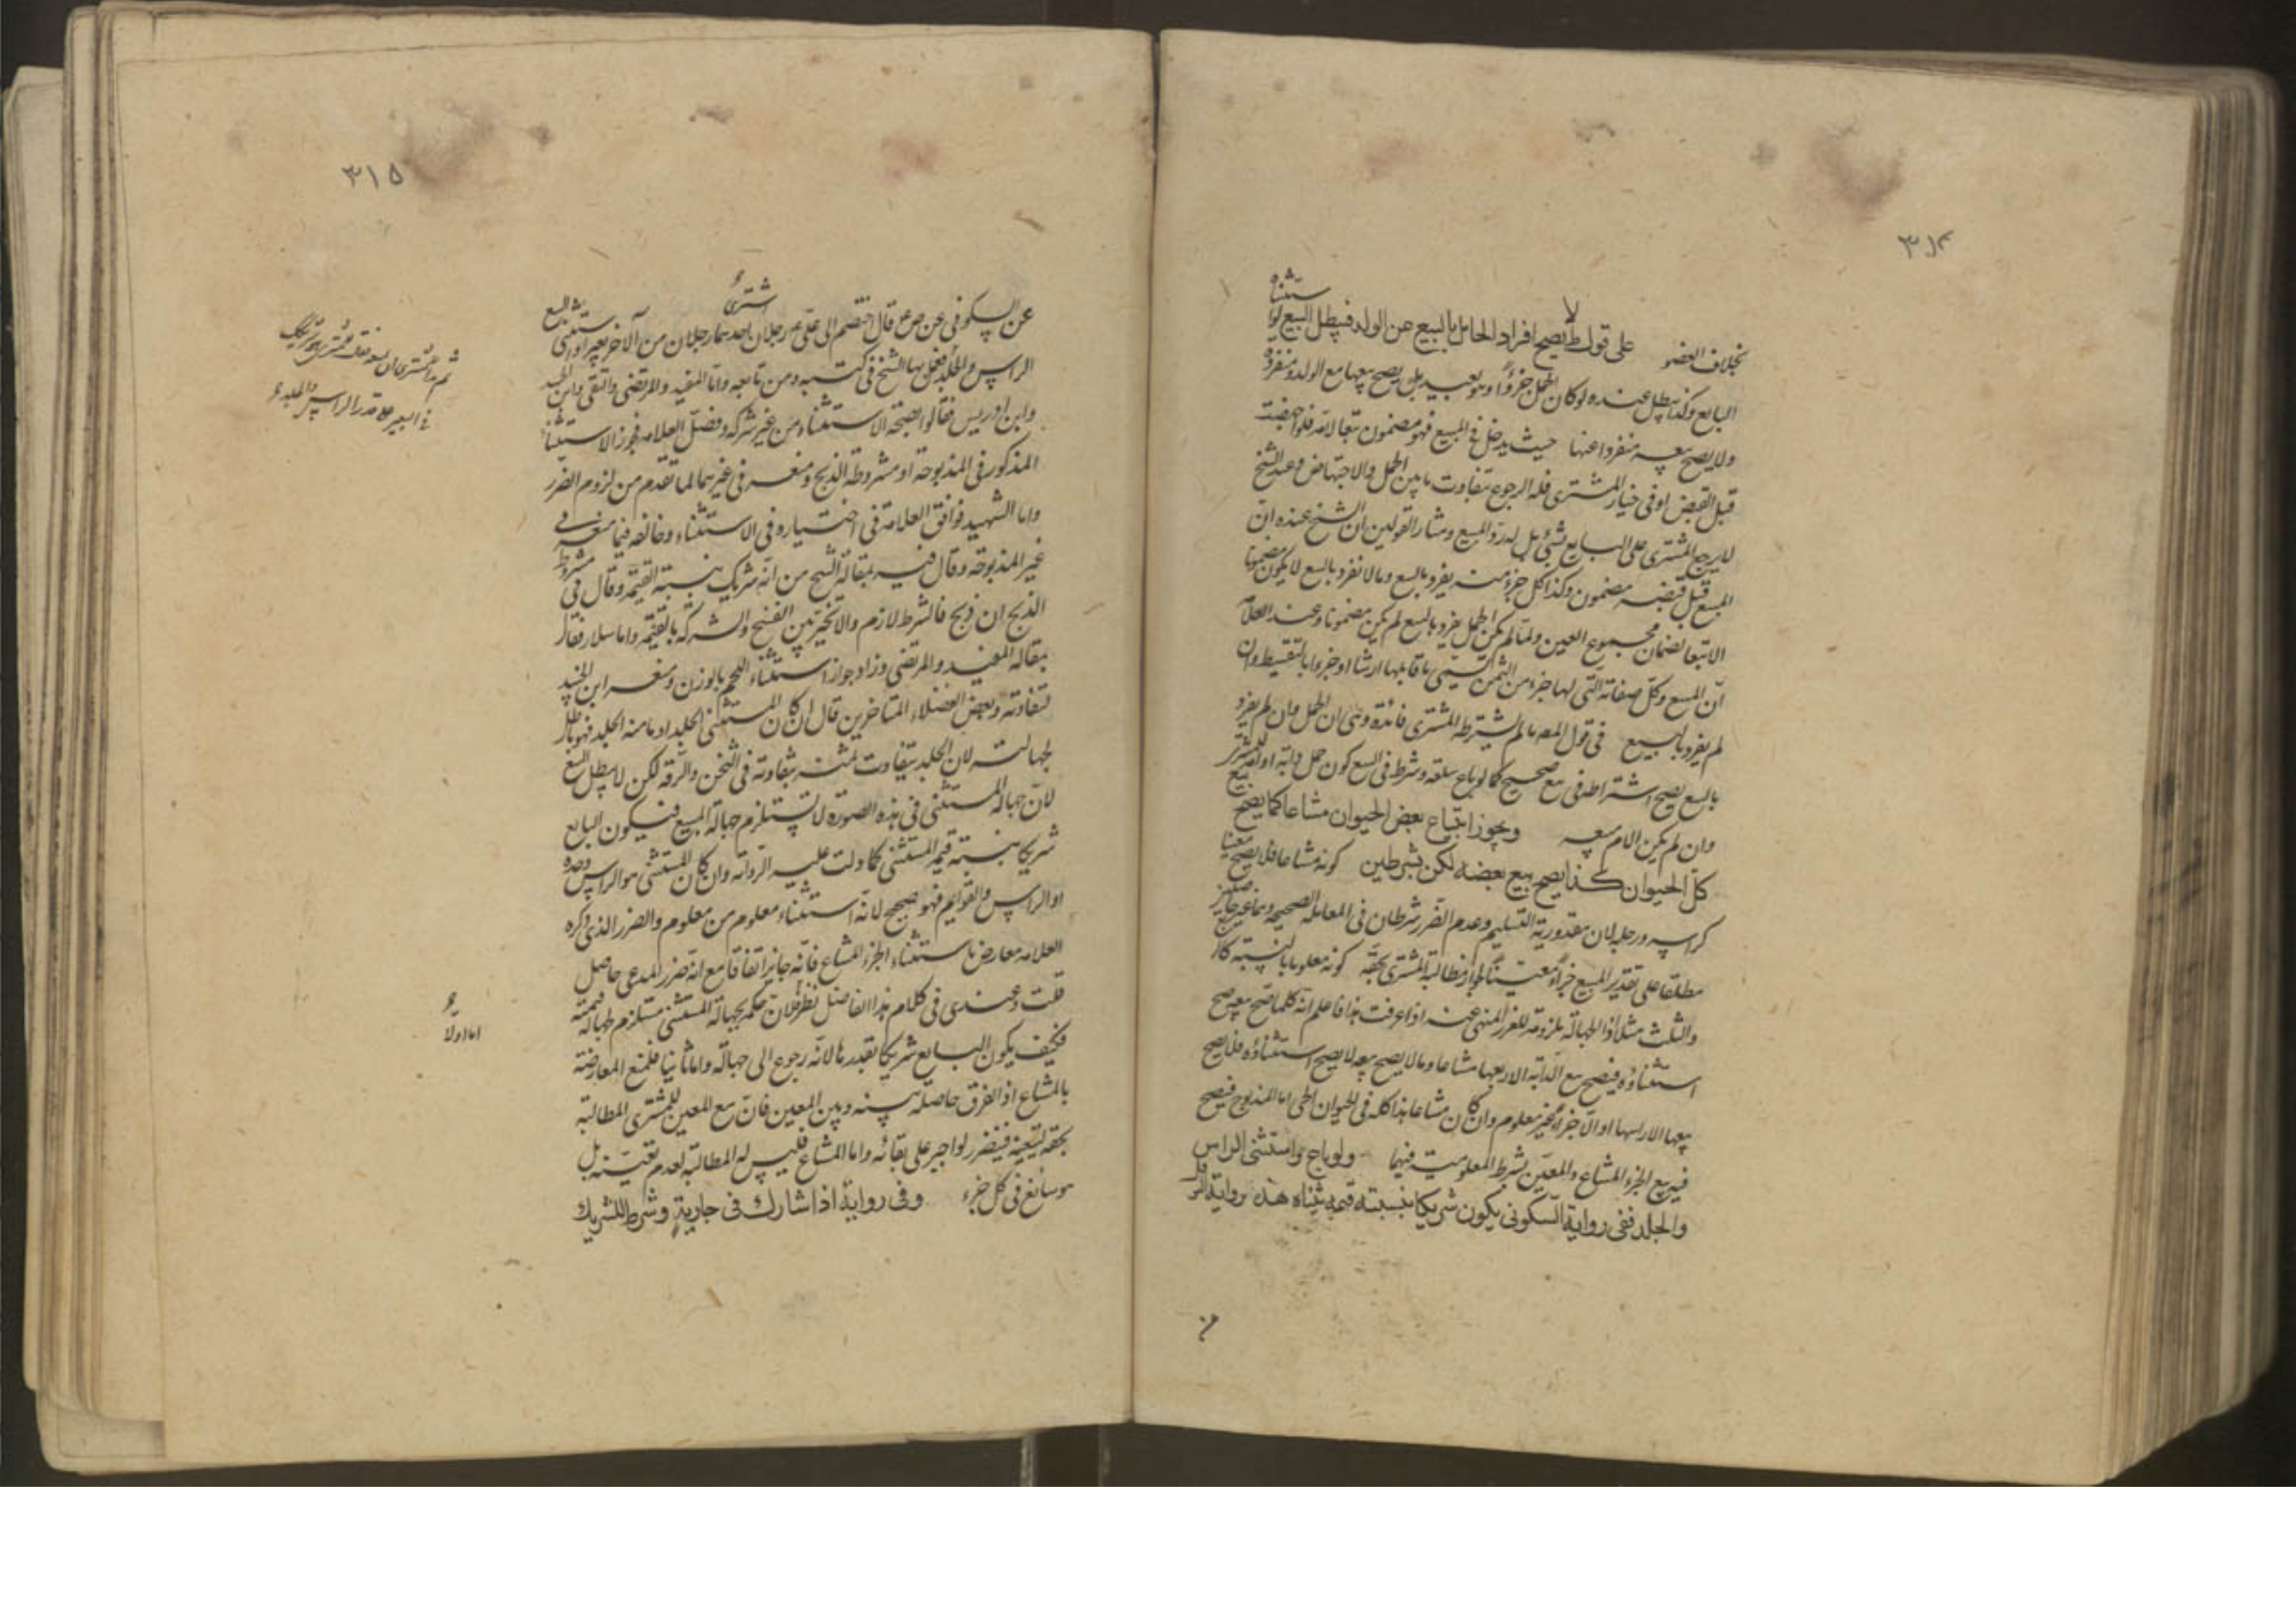 ٣١٤
بخلاف العضو على قول ط لا يصح افراد الحامل بالبيع عن الولد فيبطل البيع لو استثناه
البايع وكذا يبطل عنده لو كان الحمل حرؤا وهو بعيد بل يصح بيعها مع الولد ومنفردة
ولا يصح بيعه منفردا عنها حيث يدخل في المبيع فهو مضمون تبعا لامه فلو اجهضت
قبل القبض او في خيار المشترى فله الرجوع بتفاوت ما بين الحمل والاجهاض وعند الشيخ
لا يرجع المشترى على البايع بشئ بل له رد المبيع ومثار القولين ان الشيخ عنده ان
المبيع قبل قبضه مضمون وكذا كل جزء منه يفرد بالبيع وما لا يفرد بالبيع لا يكون مضمونا
الا تبعا لضمان مجموع العين ولما لم يكن الحمل يفرد بالبيع لم يكن مضمونا وعند العلامه
ان المبيع وكل صفاته التى لها جزء من الثمن يستحق ما قابلها ارشا او جزوا بالتقسيط وان
لم يفرد بالبيع في قول المص ما لم يشترطه المشترى فائدة وهى ان الحمل وان لم يفرد
بالبيع يصح اشتراطه في بيع صحيح كما لو باع سلعة وشرط في البيع كون حمل دابة او امة للمشترى
وان لم يكن الام معه ويجوز ابتياع بعض الحيوان مشاعا كما يصح بيع
كل الحيوان كذا يصح بيع بعضه لكن بشرطين كونه مشاعا فلا يصح معينا
كراسه ورجله لان مقدورية التسليم وعدم الضرر شرطان في المعاملة الصحيحة وهما غير حاصلين
مطلقا على تقدير المبيع جزأ معينا لجواز مطالبة المشترى بحقه كونه معلوما بالنسبة كا
والثلث مثلا اذ الجهالة ملزومة للغرر المنهى عنه اذا عرفت هذا فاعلم انه كلما صح بيعه صح
استثناؤه فيصح بيع الدابة الا ربعها مشاعا وما لا يصح بيعه لا يصح استثناؤه فلا يصح
بيعها الا راسها او الا جزأ غير معلوم وان كان مشاعا هذا كله في الحيوان الحى اما المذبوح فيصح
فيه بيع الجزء المشاع والمعين بشرط المعلومية فيهما ولو باع واستثنى الراس
والجلد ففى رواية السكونى يكون شريكا بنسبة قيمة ثنياه هذه رواية
٣١٥
عن السكونى عن ص ع قال اختصم الى على ع رجلان احدهما رجلان اشترى من الآخر بعيرا واستثنى البيع
الراس والجلد فعمل بها الشيخ في كتبه ومن تابعه واما المفيد والمرتضى والتقى وابن الجنيد
وابن ادريس فقالوا بصحة الاستثناء من غير شركة وفصل العلامه فجوز الاستثناء
المذكور في المذبوحة او مشروطة الذبح ومنعه في غيرهما لما تقدم من لزوم الضرر
واما الشهيد فوافق العلامة في اختياره في الاستثناء وخالفه فيما منعه في
غير المذبوحة وقال فيه بمقالة الشيخ من انه شريك بنسبة القيمة وقال في مشروط
الذبح ان ذبح فالشرط لازم والا تخير بين الفسخ والشركة بالقيمة واما سلار فقال
بمقالة المفيد والمرتضى وزاد جواز استثناء اللحم بالوزن ومنعه ابن الجنيد
لتفاوته وبعض الفضلاء المتاخرين قال ان كان المستثنى الجلد او ما منه الجلد فهو باطل
لجهالته لان الجلد يتفاوت ثمنه بتفاوته في الثخن والرقة لكن لا يبطل البيع
لان جهالة المستثنى في هذه الصورة لا يستلزم جهالة المبيع فيكون البايع
شريكا بنسبة قيمة المستثنى كما دلت عليه الرواية وان كان المستثنى هو الراس وحده
او الراس والقوايم فهو صحيح لانه استثناء معلوم من معلوم والضرر الذى ذكره
العلامه معارض باستثناء الجزء المشاع فانه جايز اتفاقا مع انه ضرر المدعى حاصل
قلت وعندى في كلام هذا الفاضل نظر لان حكمه بجهالة المستثنى مستلزم لجهالة قيمته
فكيف يكون البايع شريكا بقدرها لانه رجوع الى جهالة واما ثانيا فلمنع المعارضة
بالمشاع اذ الفرق حاصل بينه وبين المعين فان بيع المعين للمشترى المطالبة
بحقه لتعينه فيتضرر لو اجبر على بقائه واما المشاع فليس له المطالبة لعدم تعينه بل
هو سايغ في كل جزء وفى رواية اذا شارك فى جارية وشرط للشريك
ثم بدا للمشترى ان يبيعه فقال للمشترى هو شريكك
في البعير على قدر الراس والجلد
اما اولا